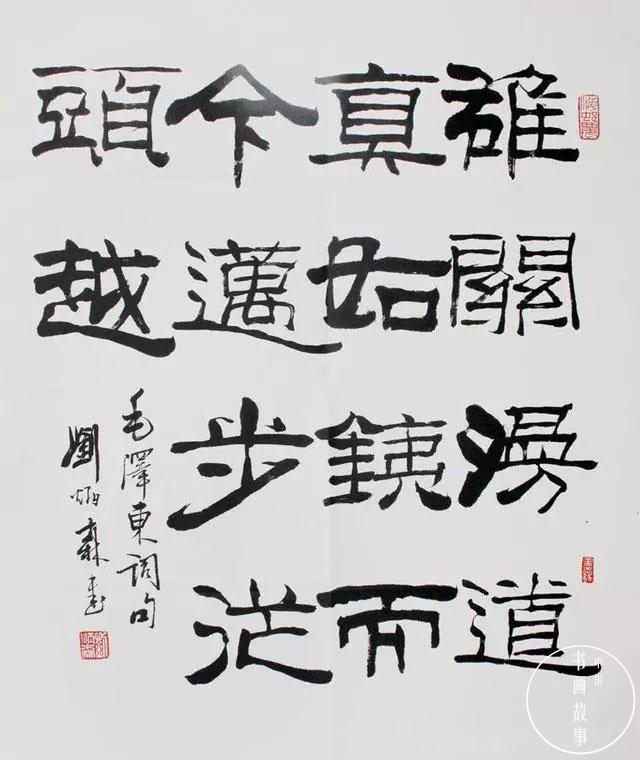 雄關漫道
真如銕而
今邁步從
頭越
毛澤東詞句
劉炳森書
中国
书画故事